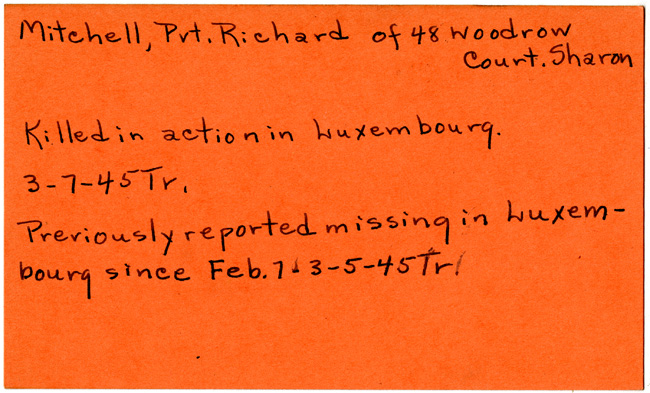 Mitchell, Pvt. Richard of 48 Woodrow
Court. Sharon
Killed in action in Luxembourg.
3-7-45 Tr.
Previously reported missing in Luxem-
bourg since Feb. 7. 3-5-45 Tr.